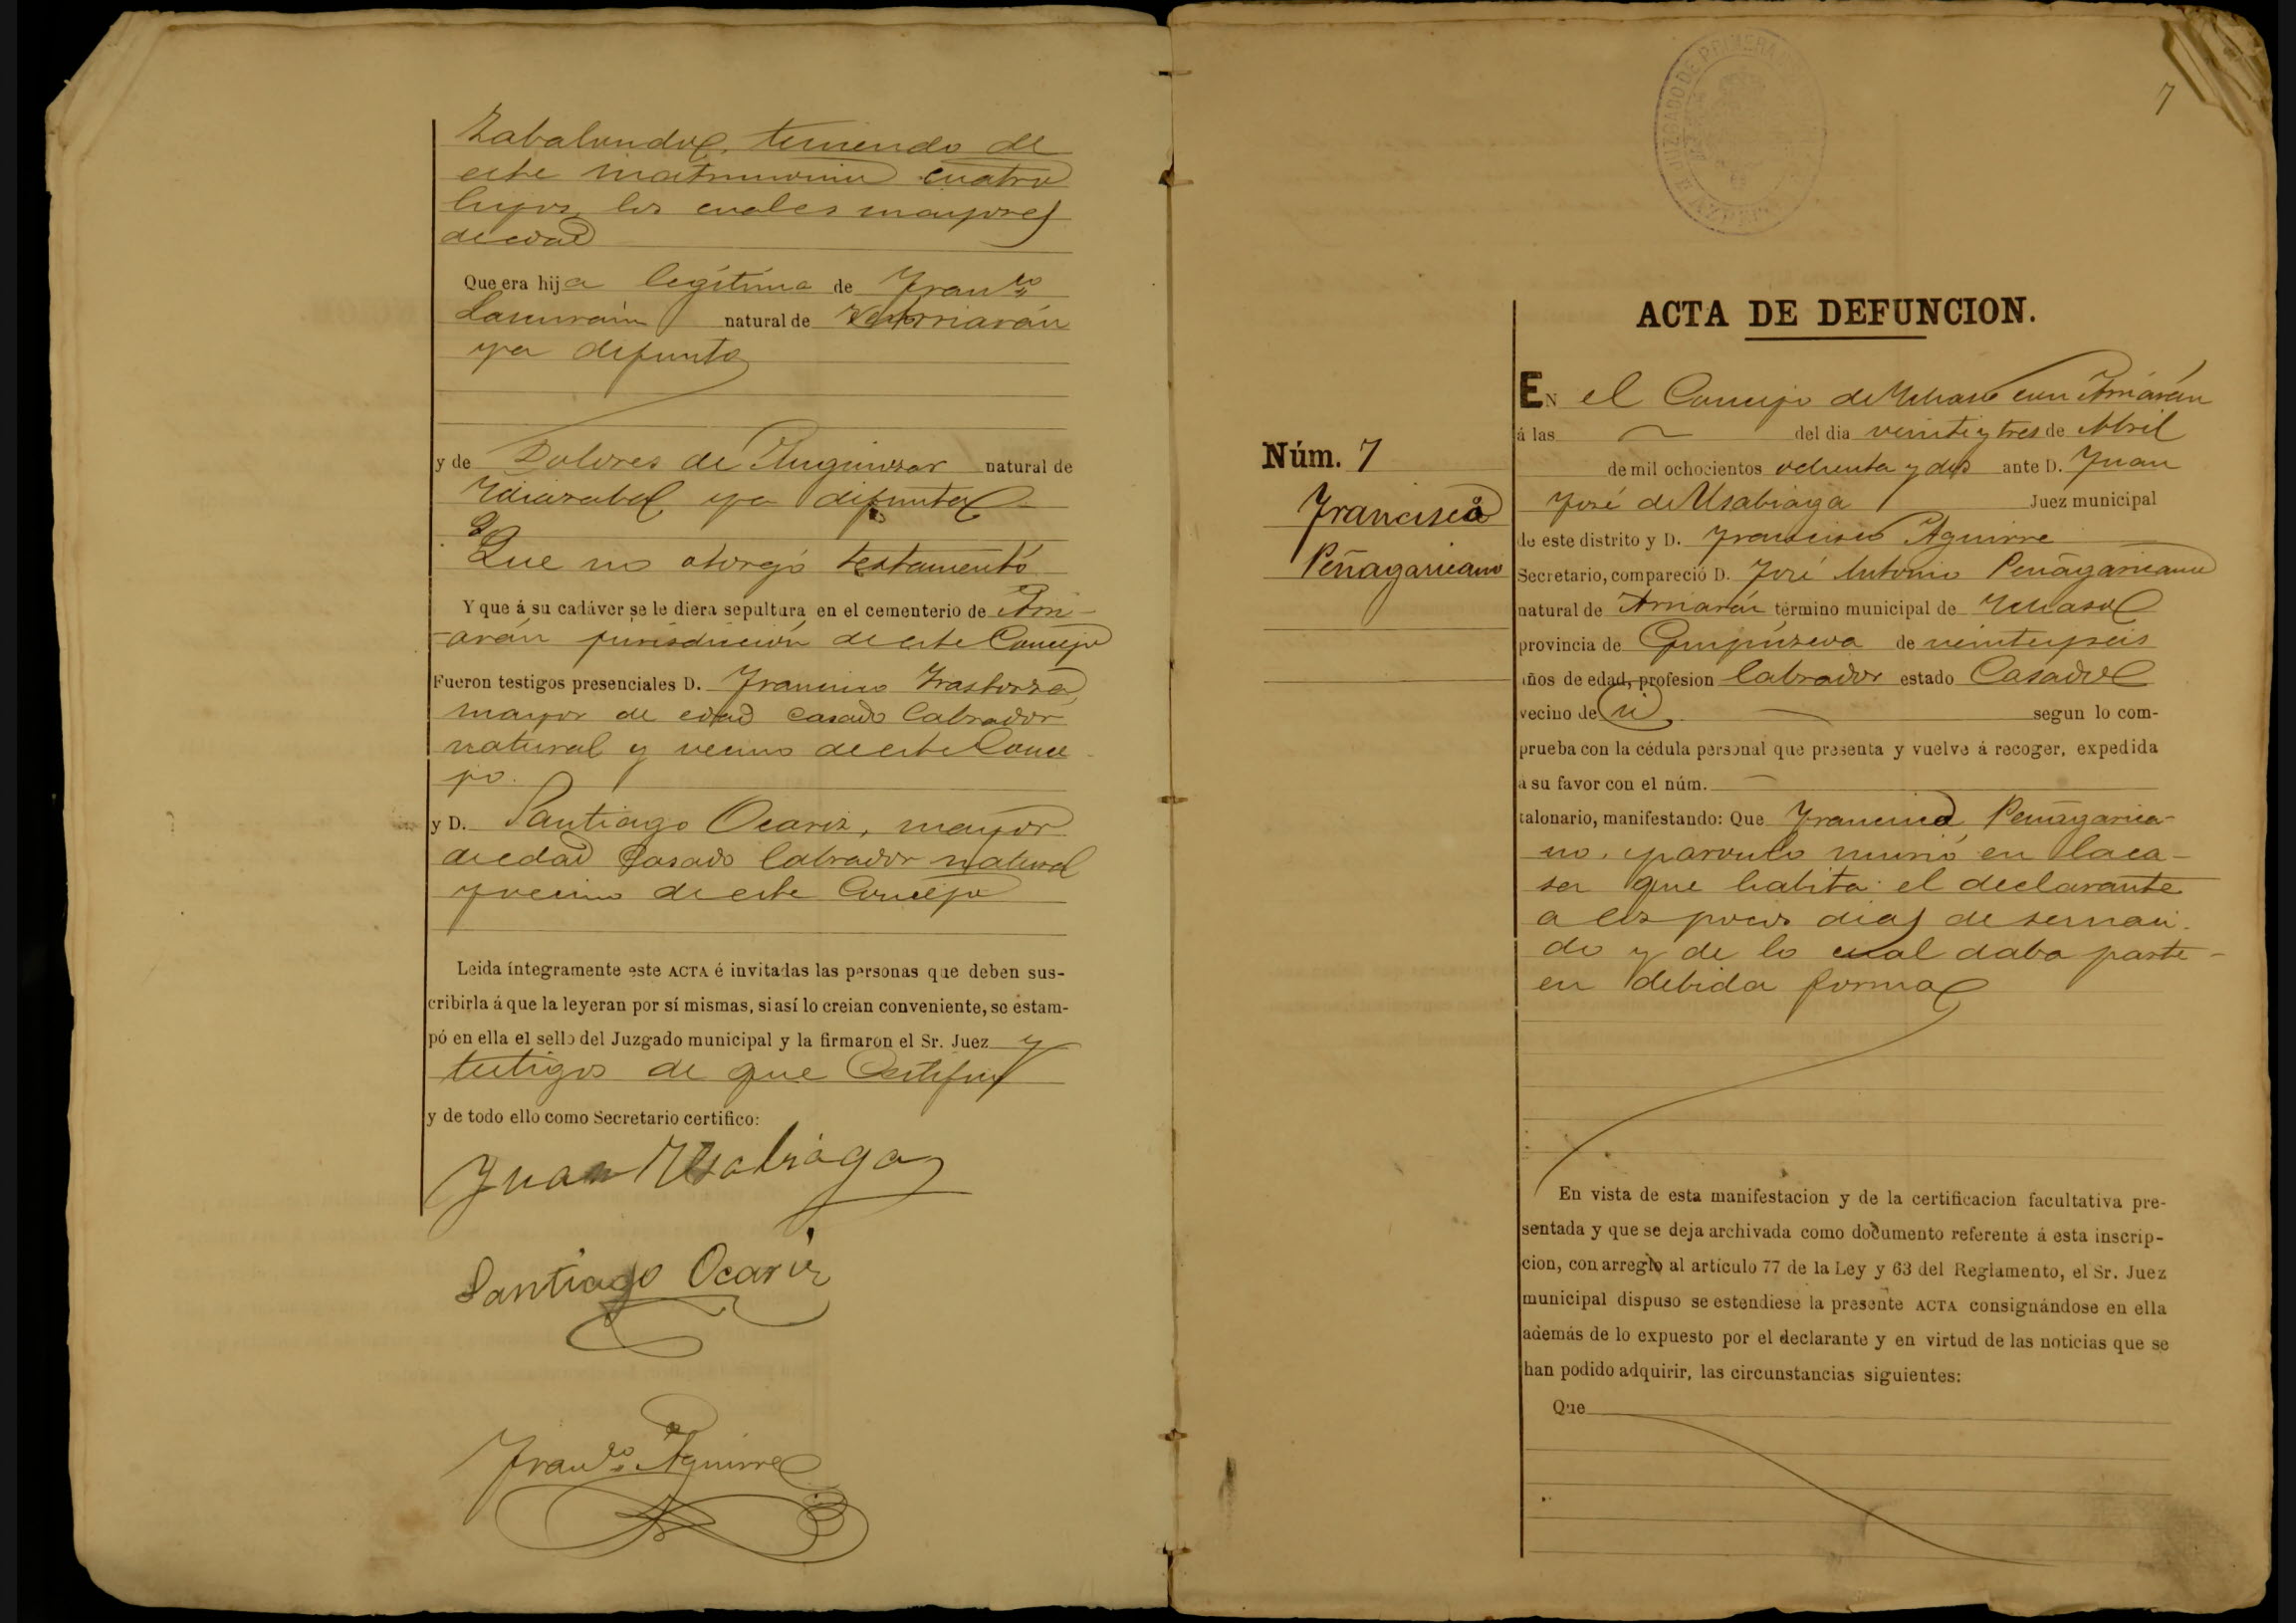 Zabalundu, teniendo de
este matrimonio cuatro
hijos, los cuales mayores
de edad
Que era hija legítima de Franco
Lascuraín natural de Arriarán
ya difunto
y de Dolores de natural de
Idiazabal ya difunta
Que no otorgó testamento
Y que á su cadáver se le diera sepultura en el cementerio de Arri-
-arán jurisdicción de este Concejo
Fueron testigos presenciales D. Francisco Irastorza,
mayor de edad casado labrador
natural y vecino de este Conce
jo.
y D. Santiago Ocariz, mayor
de edad casado labrador natural
y vecino de este Concejo
Leida íntegramente este ACTA é invitadas las personas que deben sus-
cribirla á que la leyeran por sí mismas, si así lo creian conveniente, se estam-
pó en ella el sello del Juzgado municipal y la firmaron el Sr. Juez y
testigos de que Certifico
y de todo ello como Secretario certifico:
Juan Usabiaga
Santiago Ocariz
Franco Aguirre
7
JUZGADO DE PRIMERA
AZPEITIA
ACTA DE DEFUNCION.
Núm. 7
Francisca
Peñagaricano
EN el Concejo de Ichaso con Arriarán
á las del dia veinte y tres de Abril
de mil ochocientos ochenta y dos ante D. Juan
José de Usabiaga Juez municipal
de este distrito y D. Francisco Aguirre
Secretario, compareció D. José Antonio Peñagaricano
natural de Arriarán término municipal de Ichaso
provincia de Guipúzcoa de veinteyseis
años de edad, profesion labrador estado Casado
vecino de id segun lo com-
prueba con la cédula personal que presenta y vuelve á recoger, expedida
á su favor con el núm.
talonario, manifestando: Que Francisca Peñagarica-
no, parvulo murió en la ca-
sa que habita el declarante
a los pocos dias de ser naci-
do y de lo cual daba parte
en debida forma
En vista de esta manifestacion y de la certificacion facultativa pre-
sentada y que se deja archivada como documento referente á esta inscrip-
cion, con arreglo al articulo 77 de la Ley y 63 del Reglamento, el Sr. Juez
municipal dispuso se estendiese la presente ACTA consignándose en ella
además de lo expuesto por el declarante y en virtud de las noticias que se
han podido adquirir, las circunstancias siguientes:
Que